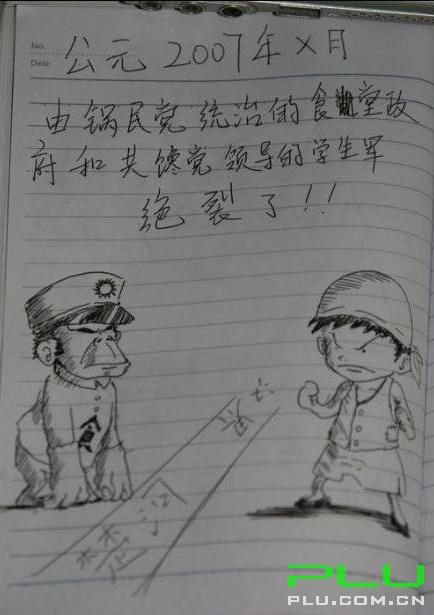 No.
Date
公元 2007年X月
由锅民党统治的食堂政
府和共馋党领导的学生军
绝裂了!!
楚河
PLU
PLU.COM.CN